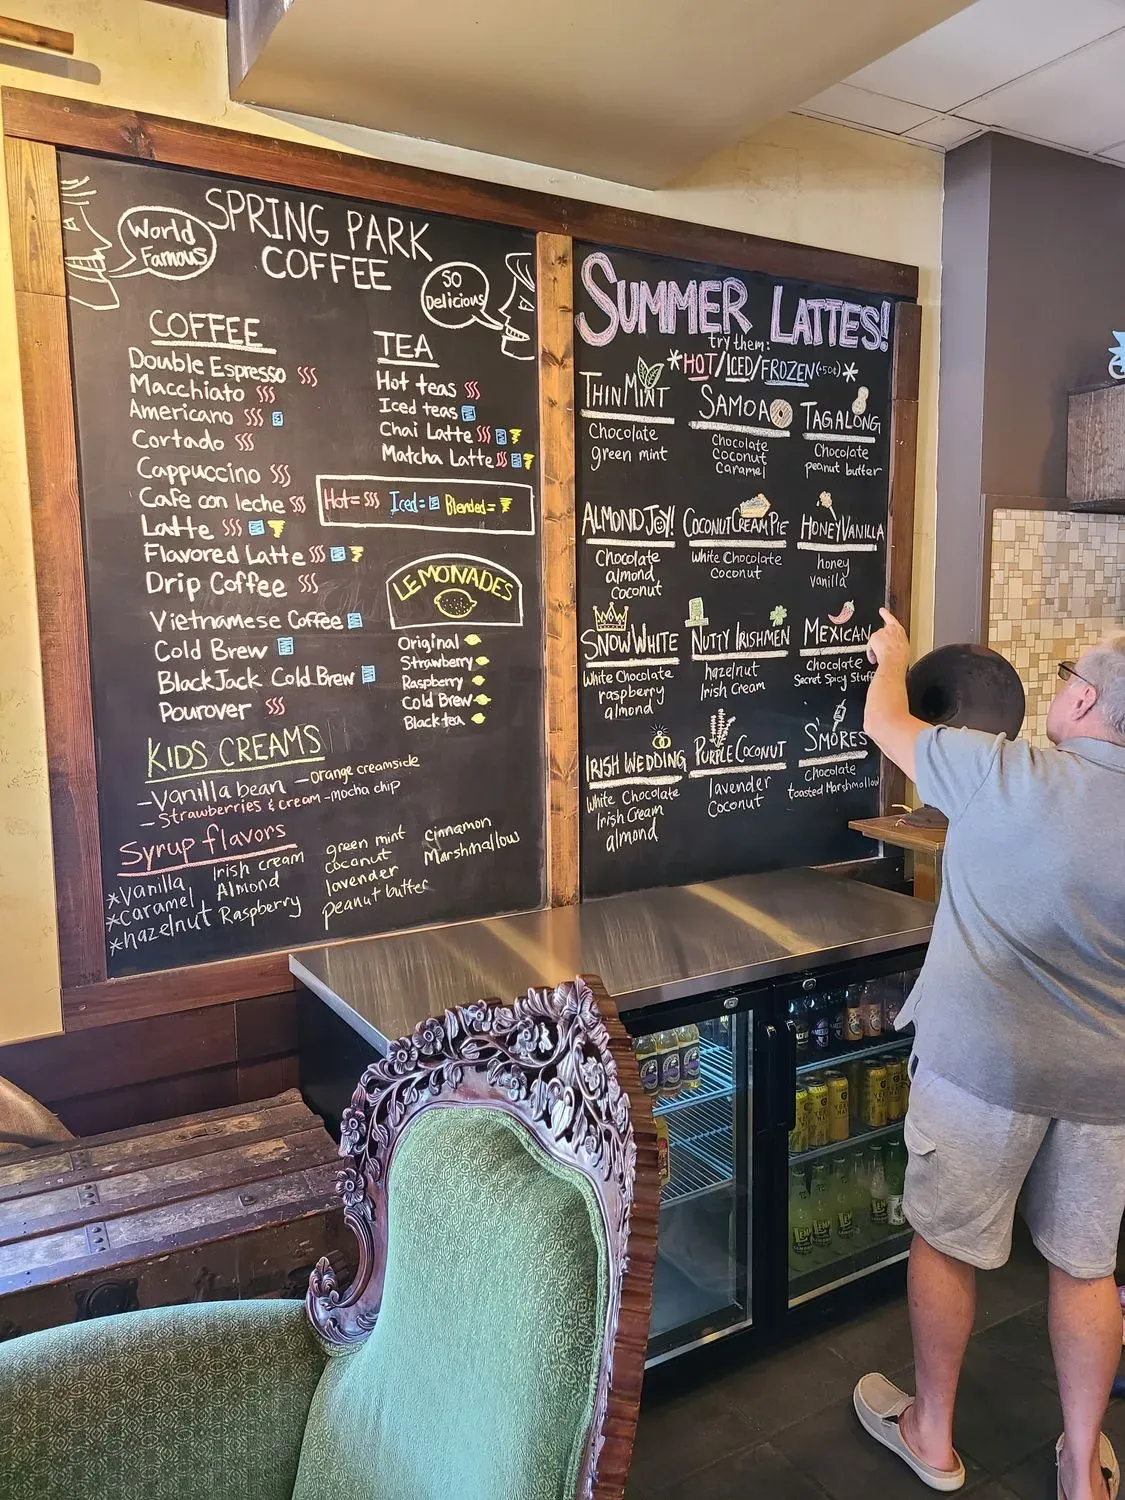 World
Famous
SPRING PARK
COFFEE
So
Delicious
COFFEE
Double Espresso
Macchiato
Americano
Cortado
Cappuccino
Cafe con leche
Latte
Flavored Latte
Drip Coffee
Vietnamese Coffee
Cold Brew
BlackJack Cold Brew
Pourover
TEA
Hot teas
Iced teas
Chai Latte
Matcha Latte
Hot= Iced= Blended=
LEMONADES
Original
Strawberry
Raspberry
Cold Brew
Black tea
KIDS CREAMS
-Vanilla bean -Orange creamsicle
-Strawberries & cream -mocha chip
Syrup flavors
*Vanilla
*Caramel
*hazelnut
Irish cream
Almond
Raspberry
green mint
coconut
lavender
peanut butter
cinnamon
Marshmallow
SUMMER LATTES!
try them:
*HOT/ICED/FROZEN(+50¢)*
THIN MINT
Chocolate
green mint
SAMOA
Chocolate
Coconut
Caramel
TAGALONG
Chocolate
peanut butter
ALMOND JOY!
Chocolate
almond
coconut
COCONUT CREAM PIE
White Chocolate
Coconut
HONEY VANILLA
honey
vanilla
SNOW WHITE
White Chocolate
raspberry
almond
NUTTY IRISHMEN
hazelnut
Irish Cream
MEXICAN
chocolate
Secret Spicy Stuff
IRISH WEDDING
White Chocolate
Irish Cream
almond
PURPLE COCONUT
lavender
Coconut
S'MORES
Chocolate
toasted Marshmallow